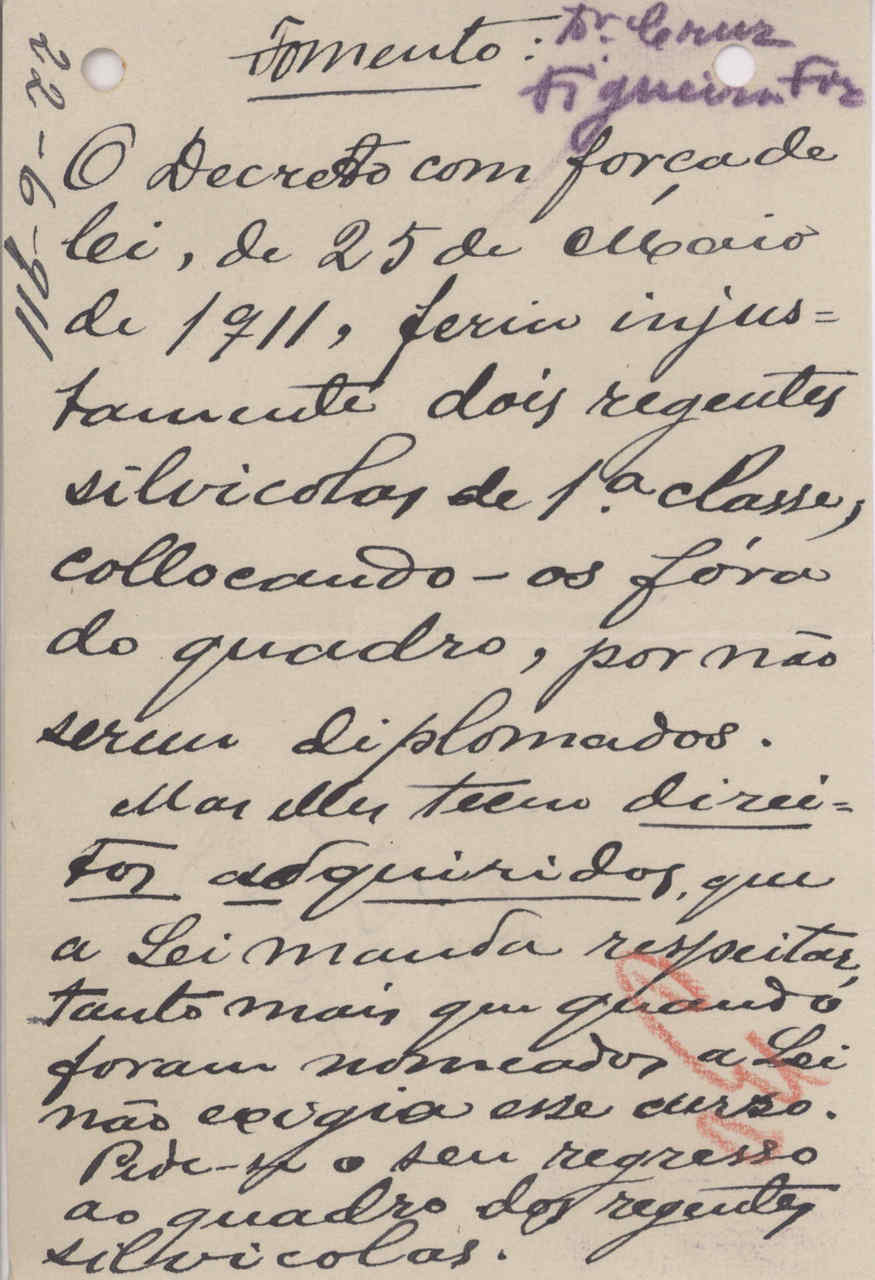 Fomento:
Dr. Cruz
Figueira Foz
22-6-911
O Decreto com força de
lei, de 25 de Maio
de 1911, feriu injus=
tamente dois regentes
silvicolas de 1.ª classe,
collocando-os fóra
do quadro, por não
serem diplomados.
Mas elles teem direi=
tos adquiridos, que
a Lei manda respeitar,
tanto mais que quando
foram nomeados a Lei
não exigia esse curso.
Pede-se o seu regresso
ao quadro dos regentes
silvicolas.